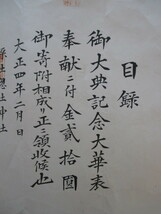 目録
御大典記念大華表
奉献ニ付金貳拾圓
御寄附相成リ正ニ領收候也
大正四年二月日
総社神社